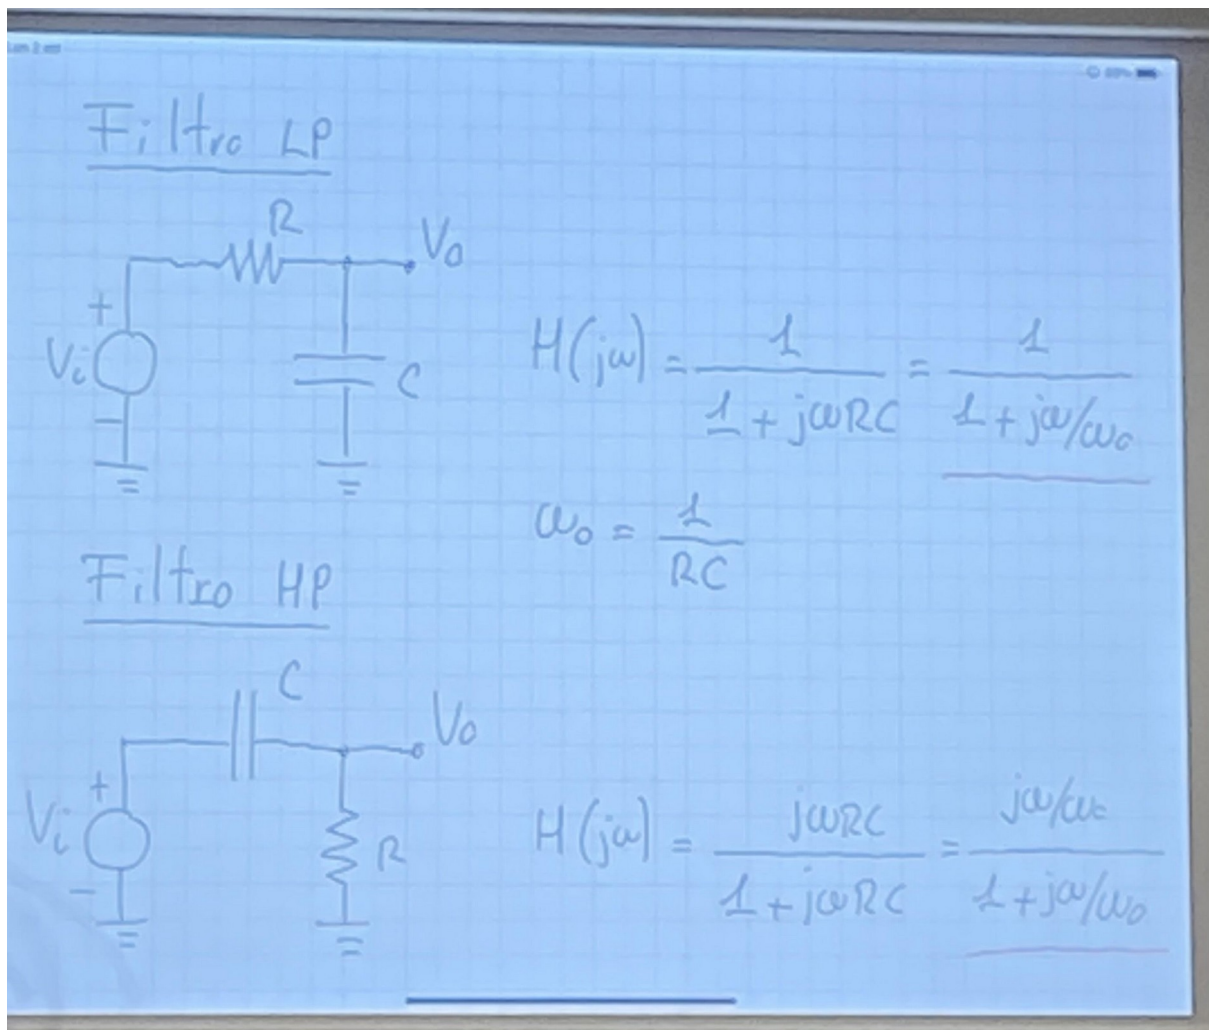 Filtro LP
R
Vo
+
Vi
-
C
H(jω) = 1/(1 + jωRC) = 1/(1 + jω/ωo)
ωo = 1/RC
Filtro HP
C
Vo
+
Vi
-
R
H(jω) = jωRC/(1 + jωRC) = (jω/ωo)/(1 + jω/ωo)